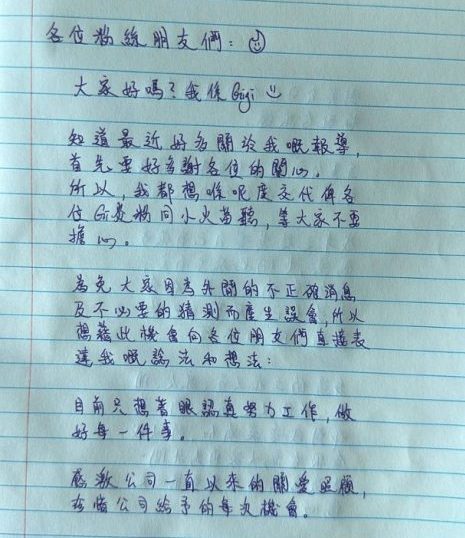 各位粉絲朋友們：☺
大家好嗎？我係Gigi ☺
知道最近好多關於我嘅報導，
首先要好多謝各位的關心。
所以，我都想喺呢度交代俾各
位Gi炎粉同小火苗聽，等大家不要
擔心。
為免大家因為外間的不正確消息
及不必要的猜測而產生誤會，所以
想藉此機會向各位朋友們直接表
達我嘅諗法和想法：
目前只想着眼認真努力工作，做
好每一件事。
感激公司一直以來的關愛照顧，
珍惜公司給予的每次機會。